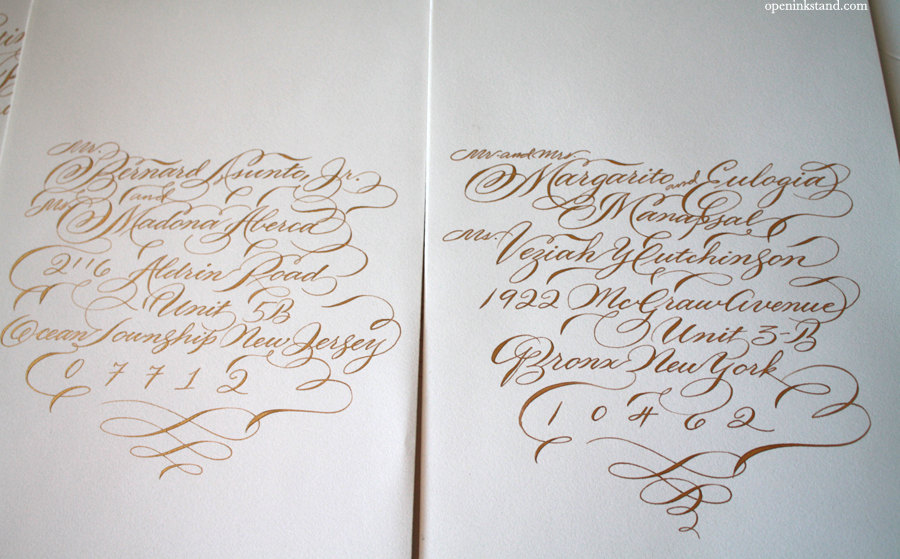 openinkstand.com
Mr.
Bernard Asunto, Jr.
and
Ms. Madona Aberca
2116 Aldrin Road
Unit 5B
Ocean Township New Jersey
0 7 7 1 2
Mr. and Mrs.
Margarito and Eulogia
Manapsal
Ms. Veziah Hutchinson
1922 McGraw Avenue
Unit 3-B
Bronx New York
1 0 4 6 2